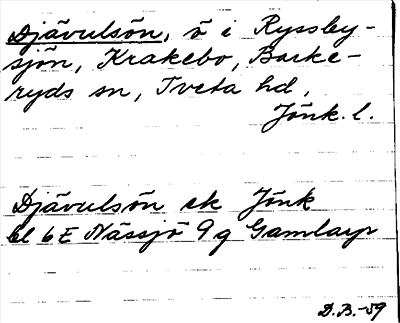 Djävulsön, ö i Ryssby-
sjön, Krakebo, Barke-
ryds sn, Tveta hd,
Jönk. l.
Djävulsön ek Jönk
bl 6E Nässjö 9g Gamlarp
D.B.-59